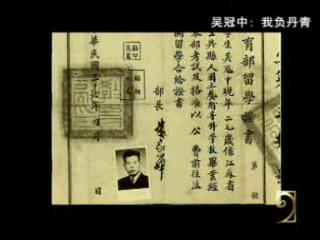 吴冠中：我负丹青
育部留學證書
第 號
學生吴冠中現年二七歲係江蘇省
興縣人國立藝術專科學校畢業經
部考試及格准以公費前往法
國留學合給證書
部長
華民國
月 日